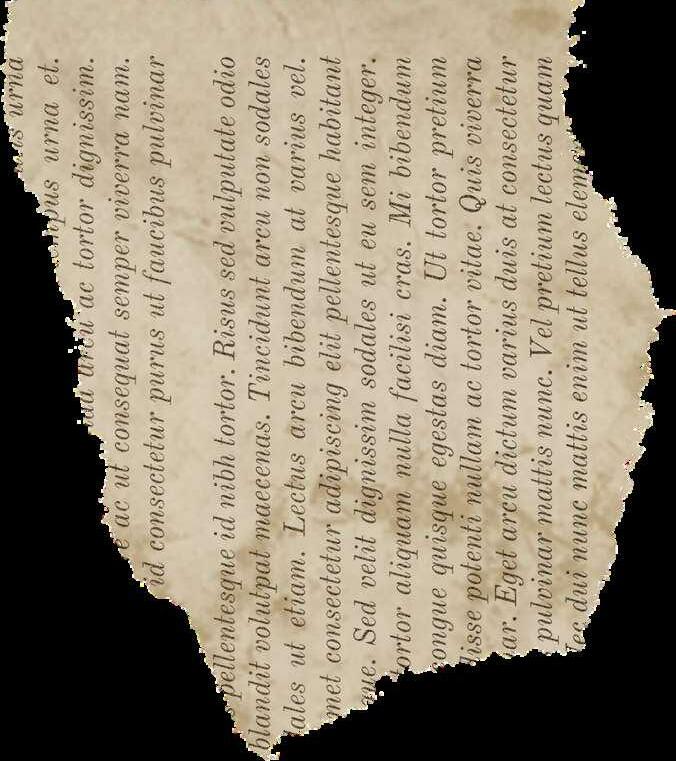 urna
urna et.
arcu ac tortor dignissim.
e ac ut consequat semper viverra nam.
id consectetur purus ut faucibus pulvinar
pellentesque id nibh tortor. Risus sed vulputate odio
blandit volutpat maecenas. Tincidunt arcu non sodales
ales ut etiam. Lectus arcu bibendum at varius vel.
met consectetur adipiscing elit pellentesque habitant
que. Sed velit dignissim sodales ut eu sem integer.
tortor aliquam nulla facilisi cras. Mi bibendum
congue quisque egestas diam. Ut tortor pretium
disse potenti nullam ac tortor vitae. Quis viverra
nar. Eget arcu dictum varius duis at consectetur
pulvinar mattis nunc. Vel pretium lectus quam
dui nunc mattis enim ut tellus elem